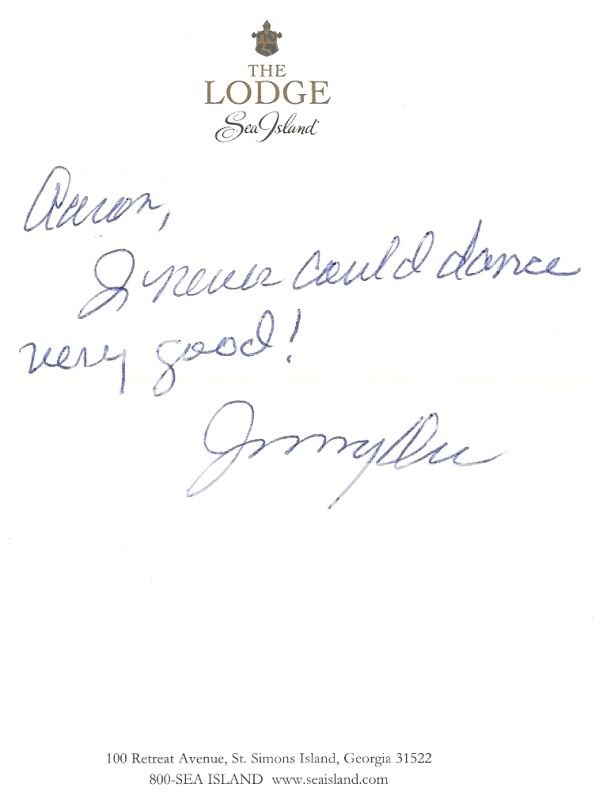 THE
LODGE
Sea Island
Aaron,
I never could dance
very good!
100 Retreat Avenue, St. Simons Island, Georgia 31522
800-SEA ISLAND www.seaisland.com